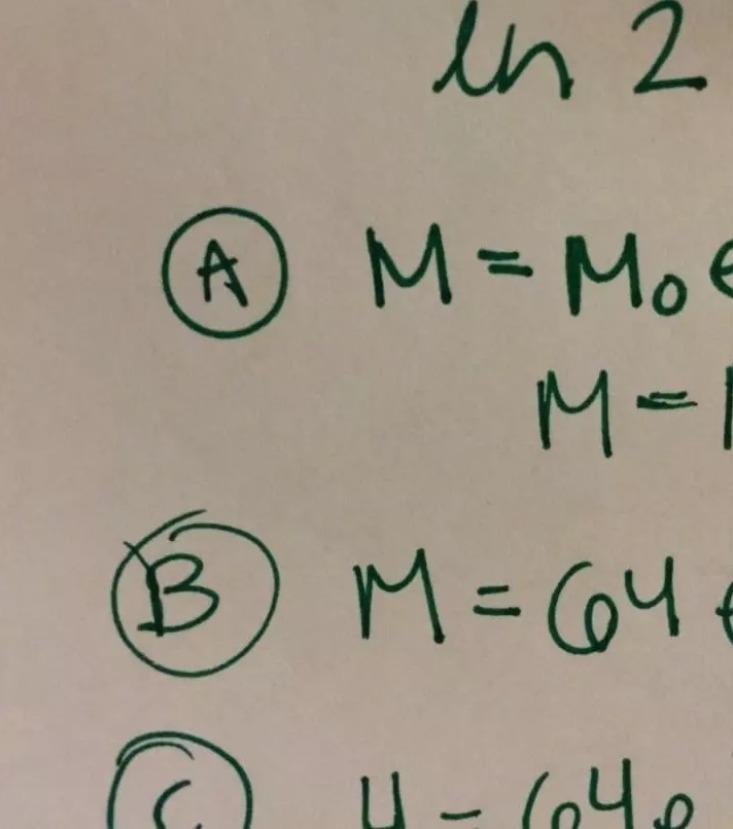 ln 2
A M = M₀ e
M =
B M = 64 e
C 4 = 64e